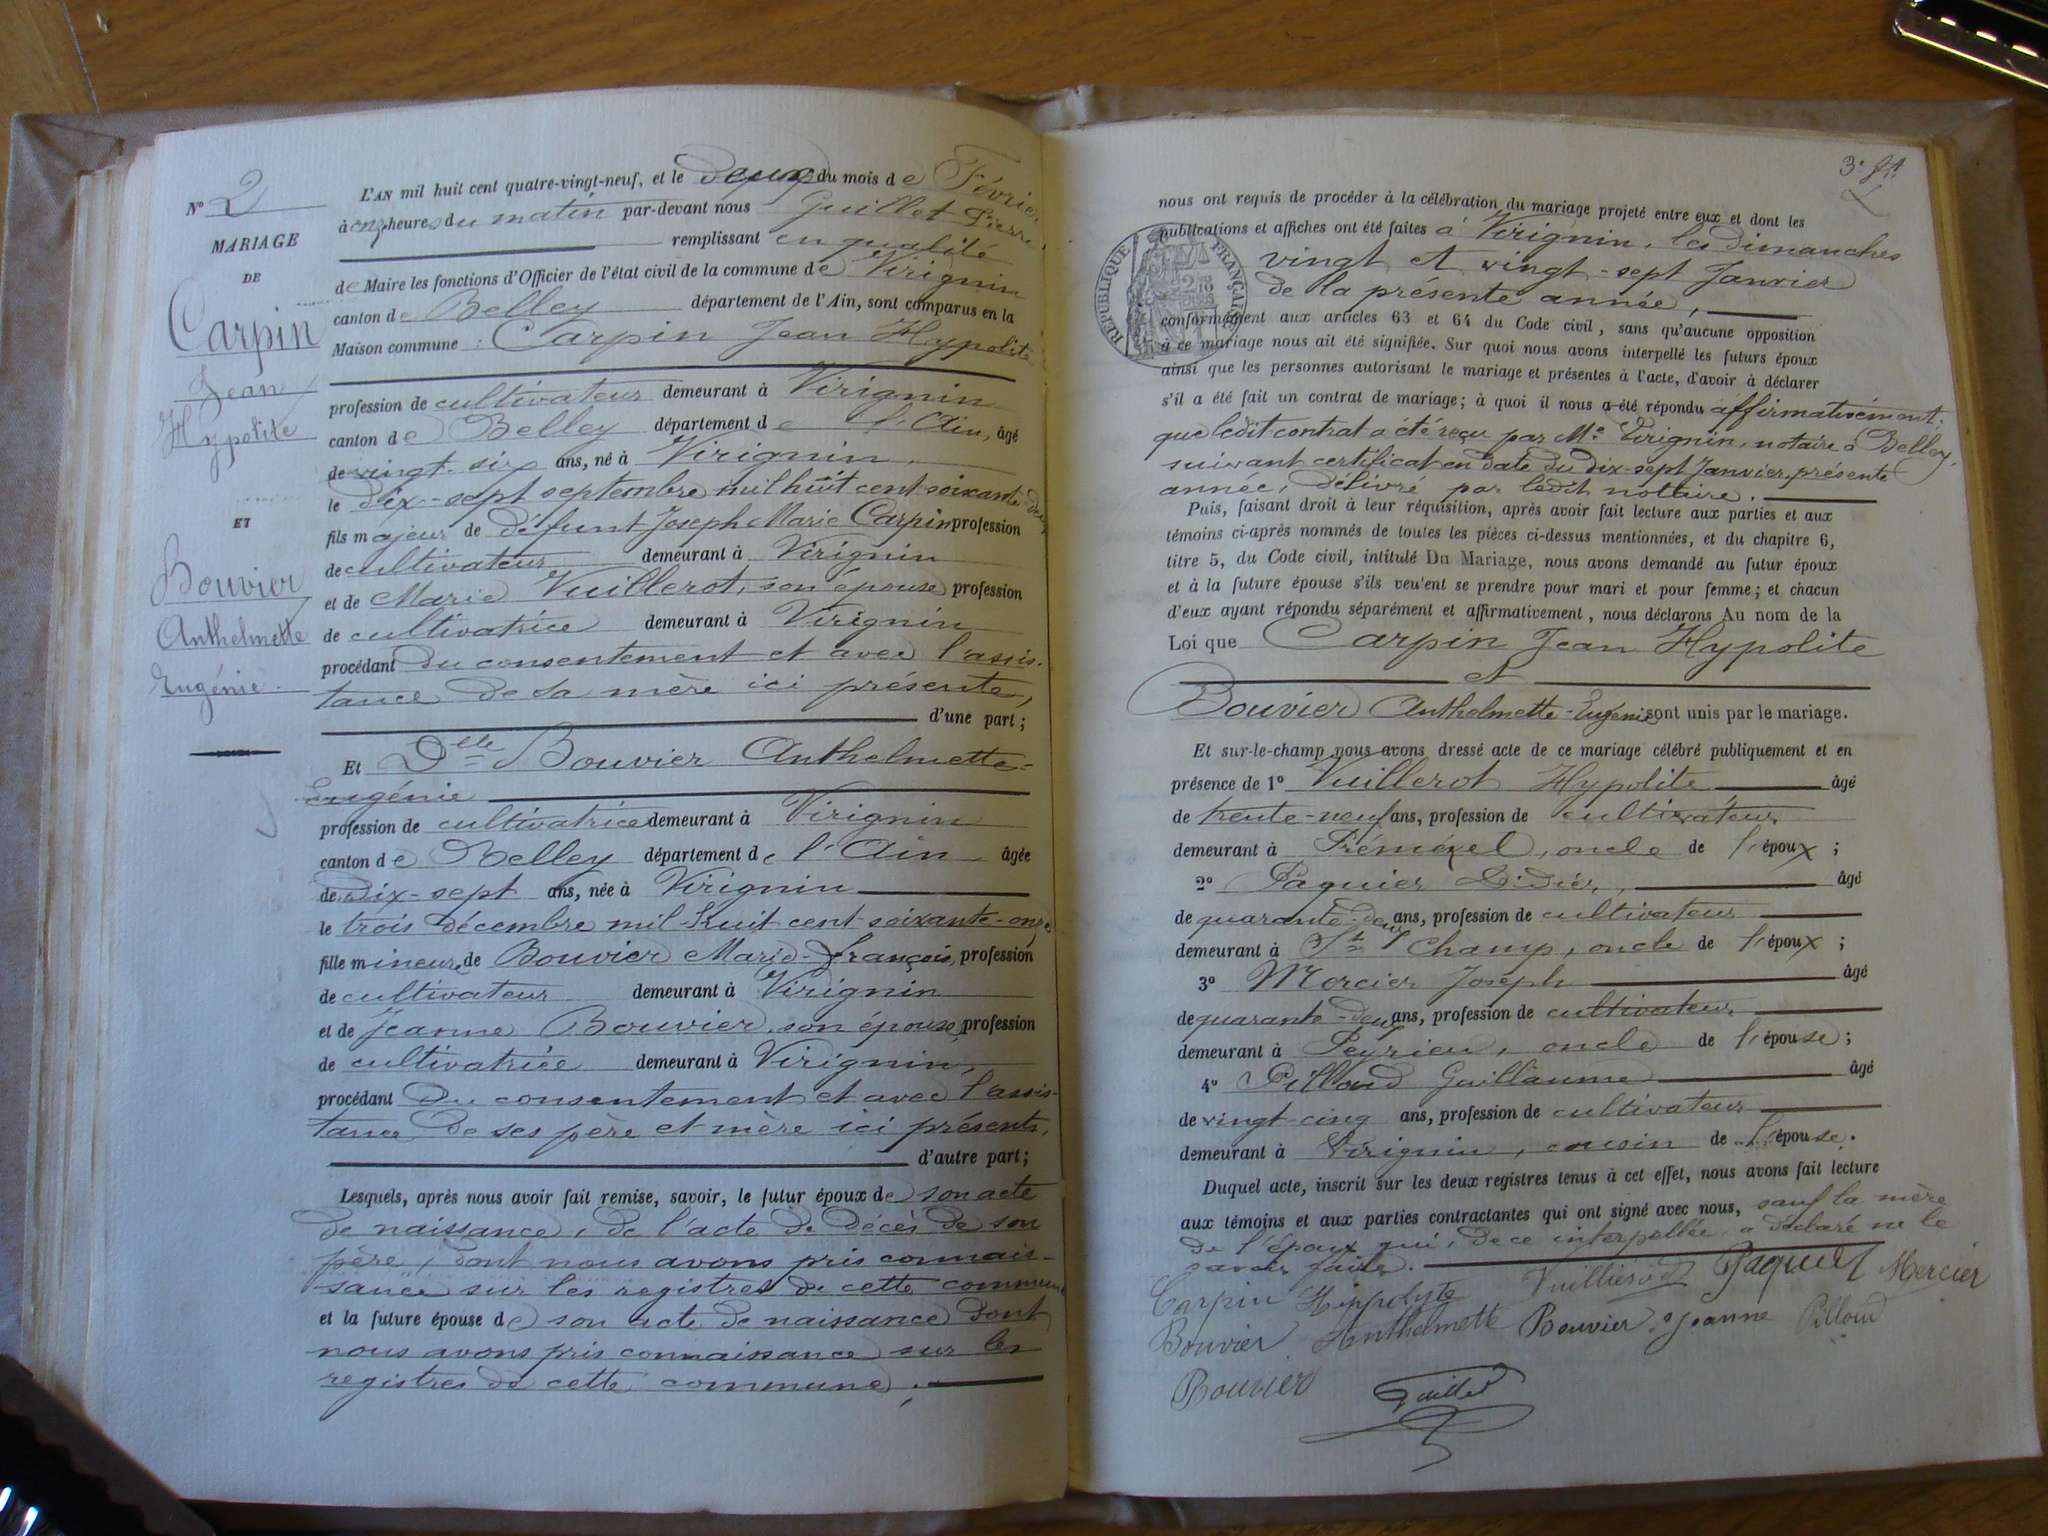 N° 2
MARIAGE
DE
Carpin
Jean
Hypolite
ET
Bouvier
Anthelmette
Eugénie.
L'AN mil huit cent quatre-vingt-neuf, et le deux du mois de Février
à onze heures du matin par-devant nous Guillet Pierre
remplissant en qualité
de Maire les fonctions d'Officier de l'état civil de la commune de Virignin
canton de Belley département de l'Ain, sont comparus en la
Maison commune : Carpin Jean Hypolite
profession de cultivateur demeurant à Virignin
canton de Belley département de l'Ain, âgé
de vingt-six ans, né à Virignin
le dix-sept septembre mil huit cent soixante-deux
fils majeur de défunt Joseph Marie Carpin profession
de cultivateur demeurant à Virignin
et de Marie Vuillerot, son épouse profession
de cultivatrice demeurant à Virignin
procédant du consentement et avec l'assis-
tance de sa mère ici présente,
d'une part ;
Et Dlle Bouvier Anthelmette-
Eugénie
profession de cultivatrice demeurant à Virignin
canton de Belley département de l'Ain âgée
de dix-sept ans, née à Virignin
le trois décembre mil huit cent soixante-onze
fille mineure de Bouvier Marie-François, profession
de cultivateur demeurant à Virignin
et de Jeanne Bouvier, son épouse, profession
de cultivatrice demeurant à Virignin,
procédant du consentement et avec l'assis-
tance de ses père et mère ici présents,
d'autre part ;
Lesquels, après nous avoir fait remise, savoir, le futur époux de son acte
de naissance, de l'acte de décès de son
père, dont nous avons pris connais-
sance sur les registres de cette commune
et la future épouse de son acte de naissance dont
nous avons pris connaissance sur les
registres de cette commune ;
3e
nous ont requis de procéder à la célébration du mariage projeté entre eux et dont les
publications et affiches ont été faites à Virignin, les dimanches
vingt et vingt-sept Janvier
de la présente année,
RÉPUBLIQUE FRANÇAISE
conformément aux articles 63 et 64 du Code civil, sans qu'aucune opposition
à ce mariage nous ait été signifiée. Sur quoi nous avons interpellé les futurs époux
ainsi que les personnes autorisant le mariage et présentes à l'acte, d'avoir à déclarer
s'il a été fait un contrat de mariage ; à quoi il nous a été répondu affirmativement.
que ledit contrat a été reçu par Me Virignin, notaire à Belley,
suivant certificat en date du dix-sept Janvier, présente
année, délivré par ledit nottaire.
Puis, faisant droit à leur réquisition, après avoir fait lecture aux parties et aux
témoins ci-après nommés de toutes les pièces ci-dessus mentionnées, et du chapitre 6,
titre 5, du Code civil, intitulé Du Mariage, nous avons demandé au futur époux
et à la future épouse s'ils veu'ent se prendre pour mari et pour femme ; et chacun
d'eux ayant répondu séparément et affirmativement, nous déclarons Au nom de la
Loi que Carpin Jean Hypolite
et
Bouvier Anthelmette-Eugénie sont unis par le mariage.
Et sur-le-champ nous avons dressé acte de ce mariage célébré publiquement et en
présence de 1° Vuillerot Hypolite âgé
de trente-neuf ans, profession de cultivateur
demeurant à oncle de l'époux ;
2° Paquier Didier, âgé
de quarante-deux ans, profession de cultivateur
demeurant à St Champ, oncle de l'époux ;
3° Mercier Joseph âgé
de quarante-deux ans, profession de cultivateur
demeurant à Peyrieu, oncle de l'épouse ;
4° Pilloud Guillaume âgé
de vingt-cinq ans, profession de cultivateur
demeurant à Virignin, cousin de l'épouse.
Duquel acte, inscrit sur les deux registres tenus à cet effet, nous avons fait lecture
aux témoins et aux parties contractantes qui ont signé avec nous, sauf la mère
de l'époux qui, de ce interpellée, a déclaré ne le
savoir faire.
Carpin Hippolyte Vuillierot Paquier Mercier
Bouvier Anthelmette Bouvier Jeanne Pilloud
Bouvier Guillet